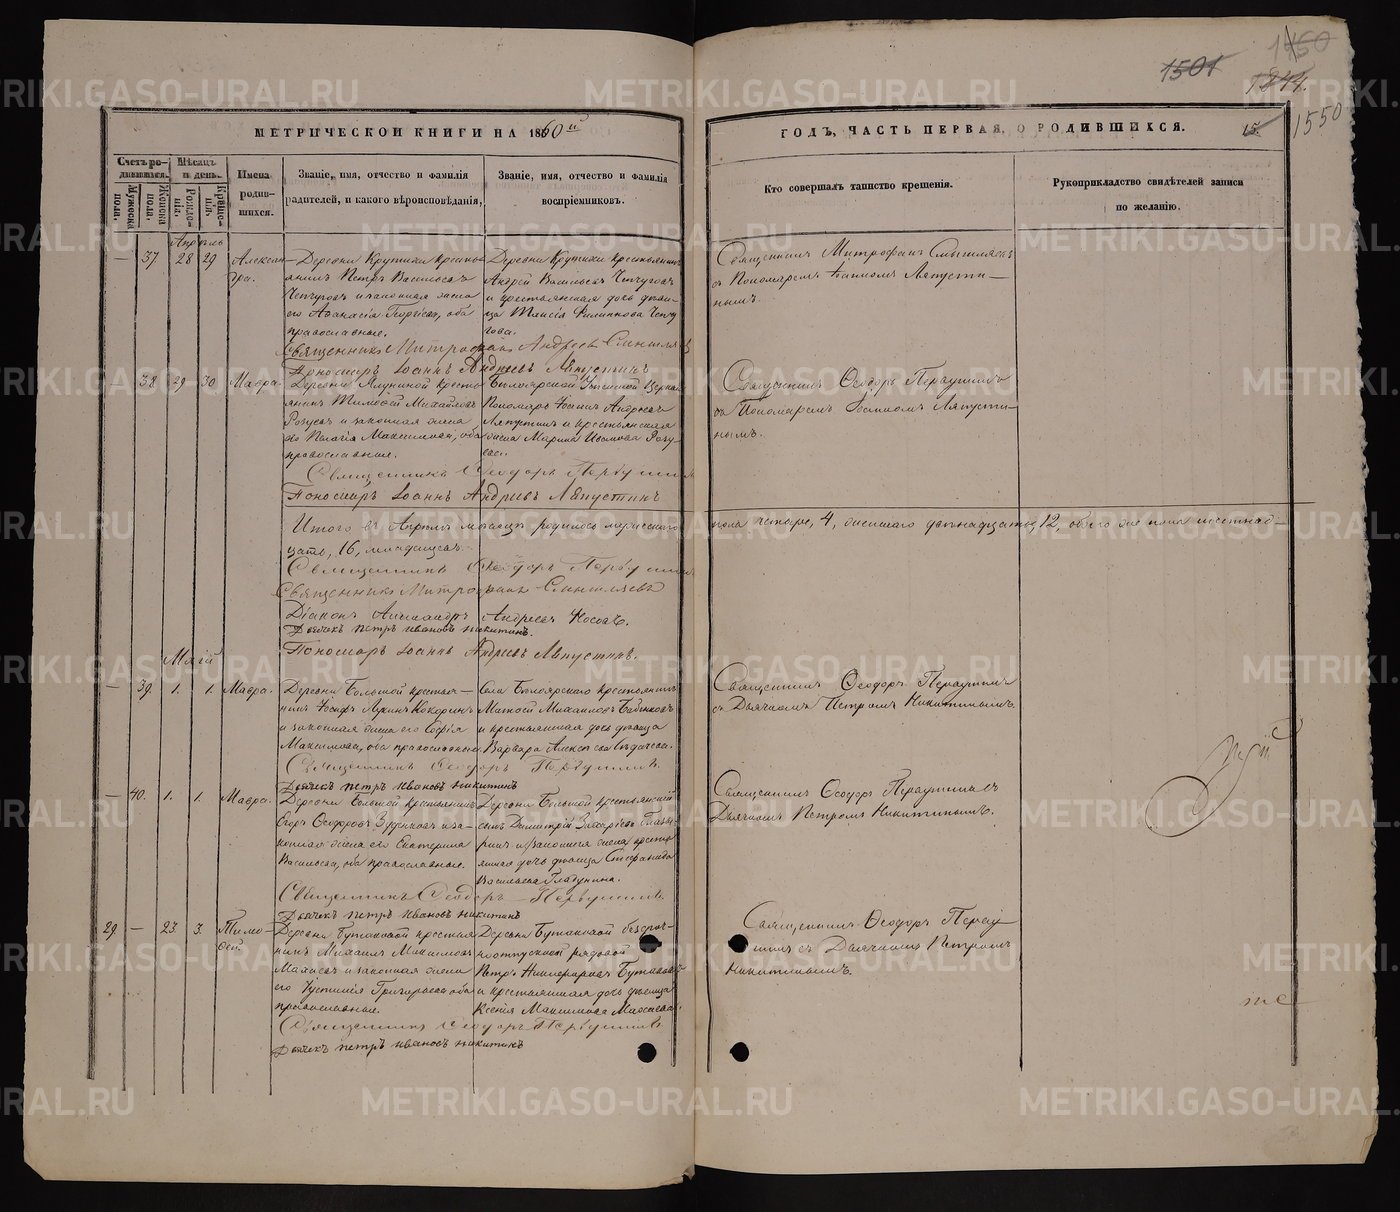 1450
1501
1244.
1550
МЕТРИЧЕСКОЙ КНИГИ НА 1860й
ГОДЪ, ЧАСТЬ ПЕРВАЯ, О РОДИВШИХСЯ.
15
Счетъ родившихся.
Мужеска пола.
Женска пола.
Мѣсяцъ и день.
Рожденія.
Крещенія.
Имена родившихся.
Званіе, имя, отчество и фамилія
родителей, и какого вѣроисповѣданія,
Званіе, имя, отчество и фамилія
воспріемниковъ.
Кто совершалъ таинство крещенія.
Рукоприкладство свидѣтелей записи
по желанію.
Апрѣль
— 37 28 29 Александра.
Деревни Крутихи крестьянинъ
Петръ Васильевъ
Чепчуговъ и законная жена
его Аѳанасія Георгіева, оба
православные.
Деревни Крутихи крестьянинъ
Андрей Васильевъ Чепчуговъ
и крестьянская дочь дѣвица
Таисія Филиппова Чепчугова.
Священникъ Митрофанъ
съ Пономаремъ Іоанномъ Ляпустинымъ.
Священникъ Митрофанъ Андреевъ
Пономарь Іоаннъ Андреевъ Ляпустинъ
— 38 29 30 Мавра.
Деревни крестьянинъ
Тимофей Михайловъ
и законная жена
его Пелагія Максимова, оба
православные.
Белоярской церкви
Пономарь Іоаннъ Андреевъ
Ляпустинъ и крестьянская
жена Марина Иванова
Священникъ Ѳеодоръ Первушинъ
съ Пономаремъ Іоанномъ Ляпустинымъ.
Священникъ Ѳеодоръ Первушинъ
Пономарь Іоаннъ Андреевъ Ляпустинъ
Итого въ Апрѣлѣ мѣсяцѣ родилось мужескаго
пола четыре, 4, женскаго двѣнадцать, 12, обоего же пола шестнадцать,
16, младенцевъ.
Священникъ Ѳеодоръ Первушинъ
Священникъ Митрофанъ
Діаконъ Александръ Андреевъ Носовъ.
Дьячекъ Петръ Ивановъ Никитинъ.
Пономарь Іоаннъ Андреевъ Ляпустинъ.
Май
— 39. 1. 1. Мавра.
Деревни Большой крестьянинъ
Іосифъ Лукинъ Кокоринъ
и законная жена его Софія
Максимова, оба православные.
Села Белоярскаго крестьянинъ
Матѳей Михайловъ
и крестьянская дочь дѣвица
Варвара
Священникъ Ѳеодоръ Первушинъ
съ Дьячкомъ Петромъ Никитинымъ.
Священникъ Ѳеодоръ Первушинъ.
Дьячекъ Петръ Ивановъ Никитинъ
— 40. 1. 1. Мавра.
Деревни Большой крестьянинъ
Егоръ Ѳеодоровъ и законная
жена его Екатерина
Васильева, оба православные.
Деревни Большой крестьянскій
сынъ Димитрій
крестьянская
дочь дѣвица Стефанида
Васильева Гладунина.
Священникъ Ѳеодоръ Первушинъ съ
Дьячкомъ Петромъ Никитинымъ.
Священникъ Ѳеодоръ Первушинъ.
Дьячекъ Петръ Ивановъ Никитинъ
29. — 23 3 Тимофей
Деревни Бутаковой крестьянинъ
Михаилъ Максимовъ
и законная жена
его Устинія Григорьева оба
православные.
Деревни Бутаковой безсрочноотпускной
рядовой
Петръ Бутаковъ
и крестьянская дочь дѣвица
Ксенія Максимова
Священникъ Ѳеодоръ Первушинъ
съ Дьячкомъ Петромъ
Никитинымъ.
Священникъ Ѳеодоръ Первушинъ
Дьячекъ Петръ Ивановъ Никитинъ
METRIKI.GASO-URAL.RU